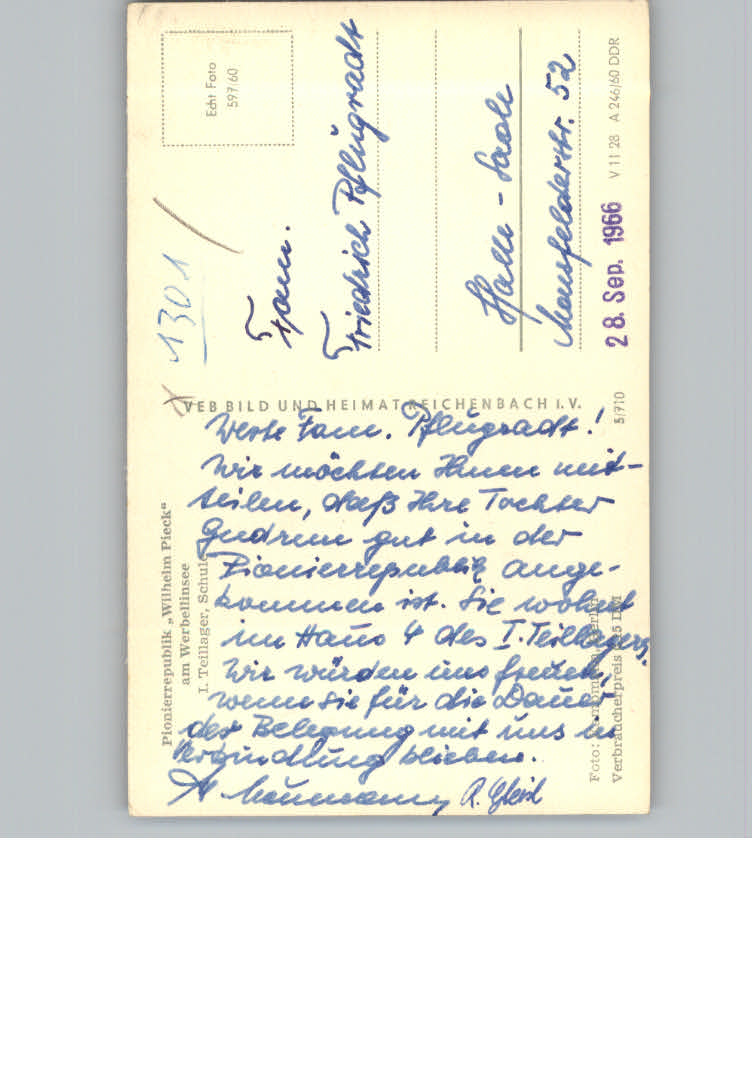 Pionierrepublik „Wilhelm Pieck“
am Werbellinsee
I. Teillager, Schule
Werte Fam. Pflugradt!
Wir möchten Ihnen mit-
teilen, daß Ihre Tochter
Gudrun gut in der
Pionierrepublik ange-
kommen ist. Sie wohnt
im Haus 4 des I. Teillagers.
Wir würden uns freuen,
wenn sie für die Dauer
der Belegung mit uns in
Verbindung blieben.
Naumann,
VEB BILD UND HEIMAT REICHENBACH I. V.
Foto: Berlin
Verbraucherpreis DM
5/710
1301
Echt Foto
597/60
Fam.
Friedrich Pflugradt
Halle - Saale
Mansfelderstr. 52
28. Sep. 1966
V 11 28 A 246/60 DDR